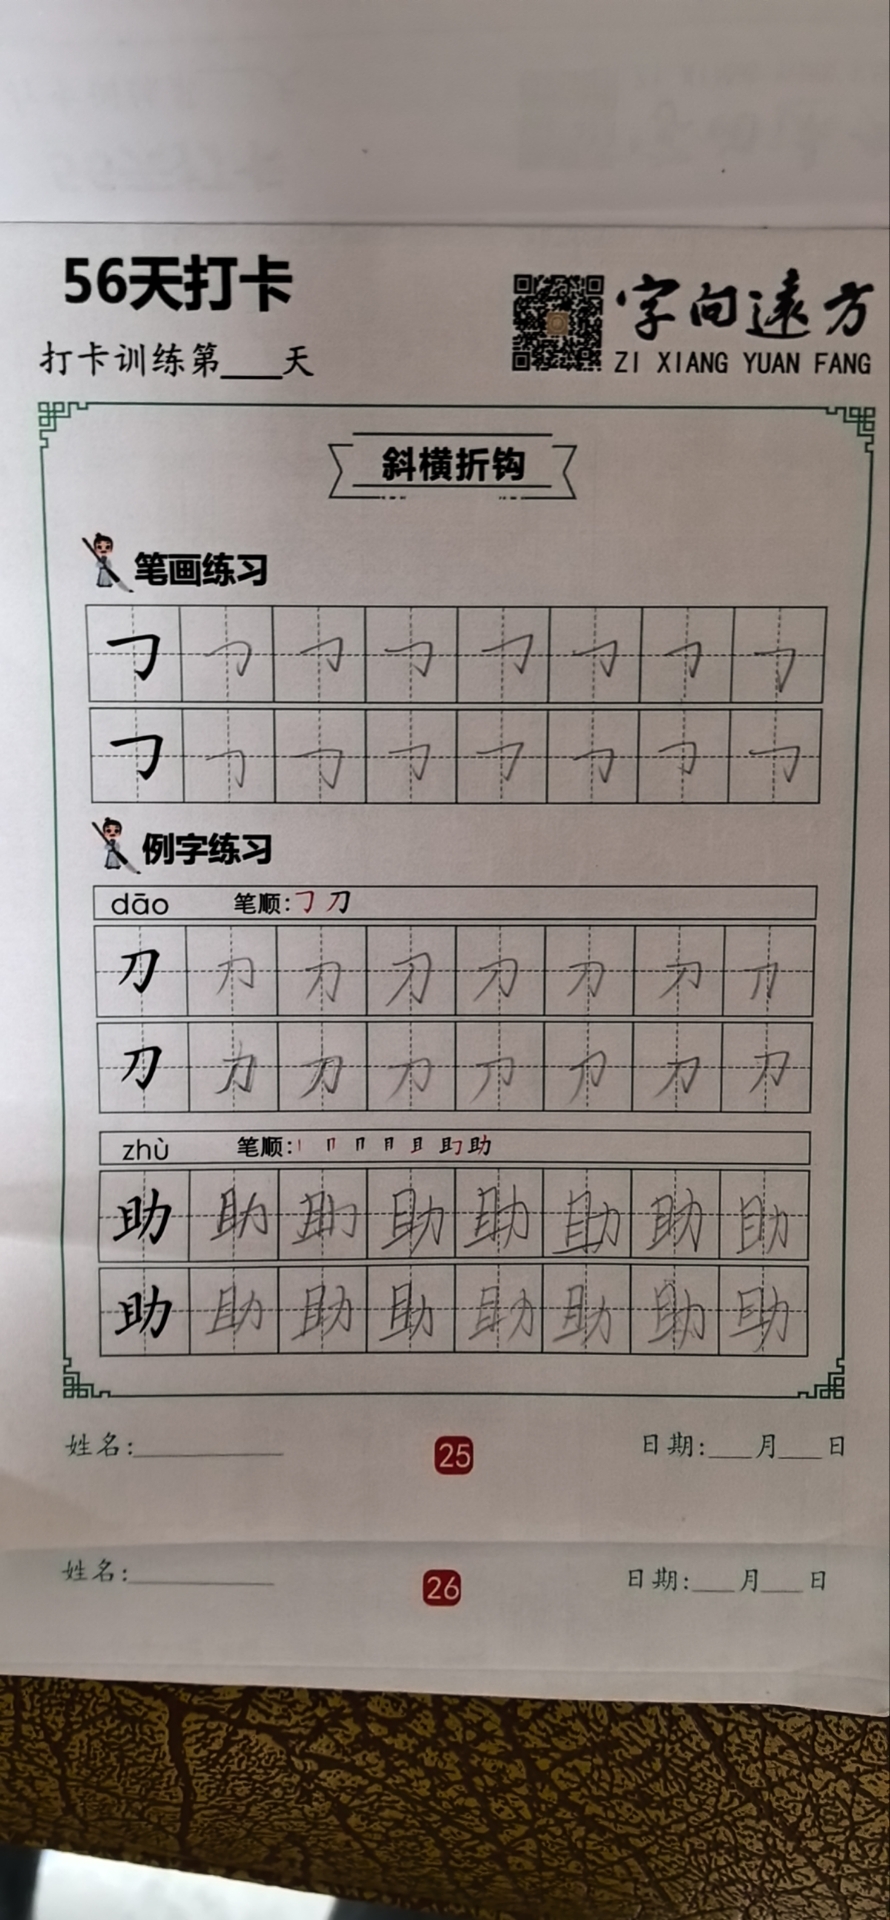 56天打卡
打卡训练第___天
字向遠方
ZI XIANG YUAN FANG
斜横折钩
笔画练习
𠃌 𠃌 𠃌 𠃌 𠃌 𠃌 𠃌 𠃌
𠃌 𠃌 𠃌 𠃌 𠃌 𠃌 𠃌 𠃌
例字练习
dāo 笔顺:𠃌 刀
刀 刀 刀 刀 刀 刀 刀 刀
刀 力 刀 刀 刀 刀 刀 刀
zhù 笔顺: 丨 冂 冂 月 且 助
助 助 助 助 助 助 助 助
助 助 助 助 助 助 助 助
姓名:___________ 25 日期:___月___日
姓名:___________ 26 日期:___月___日